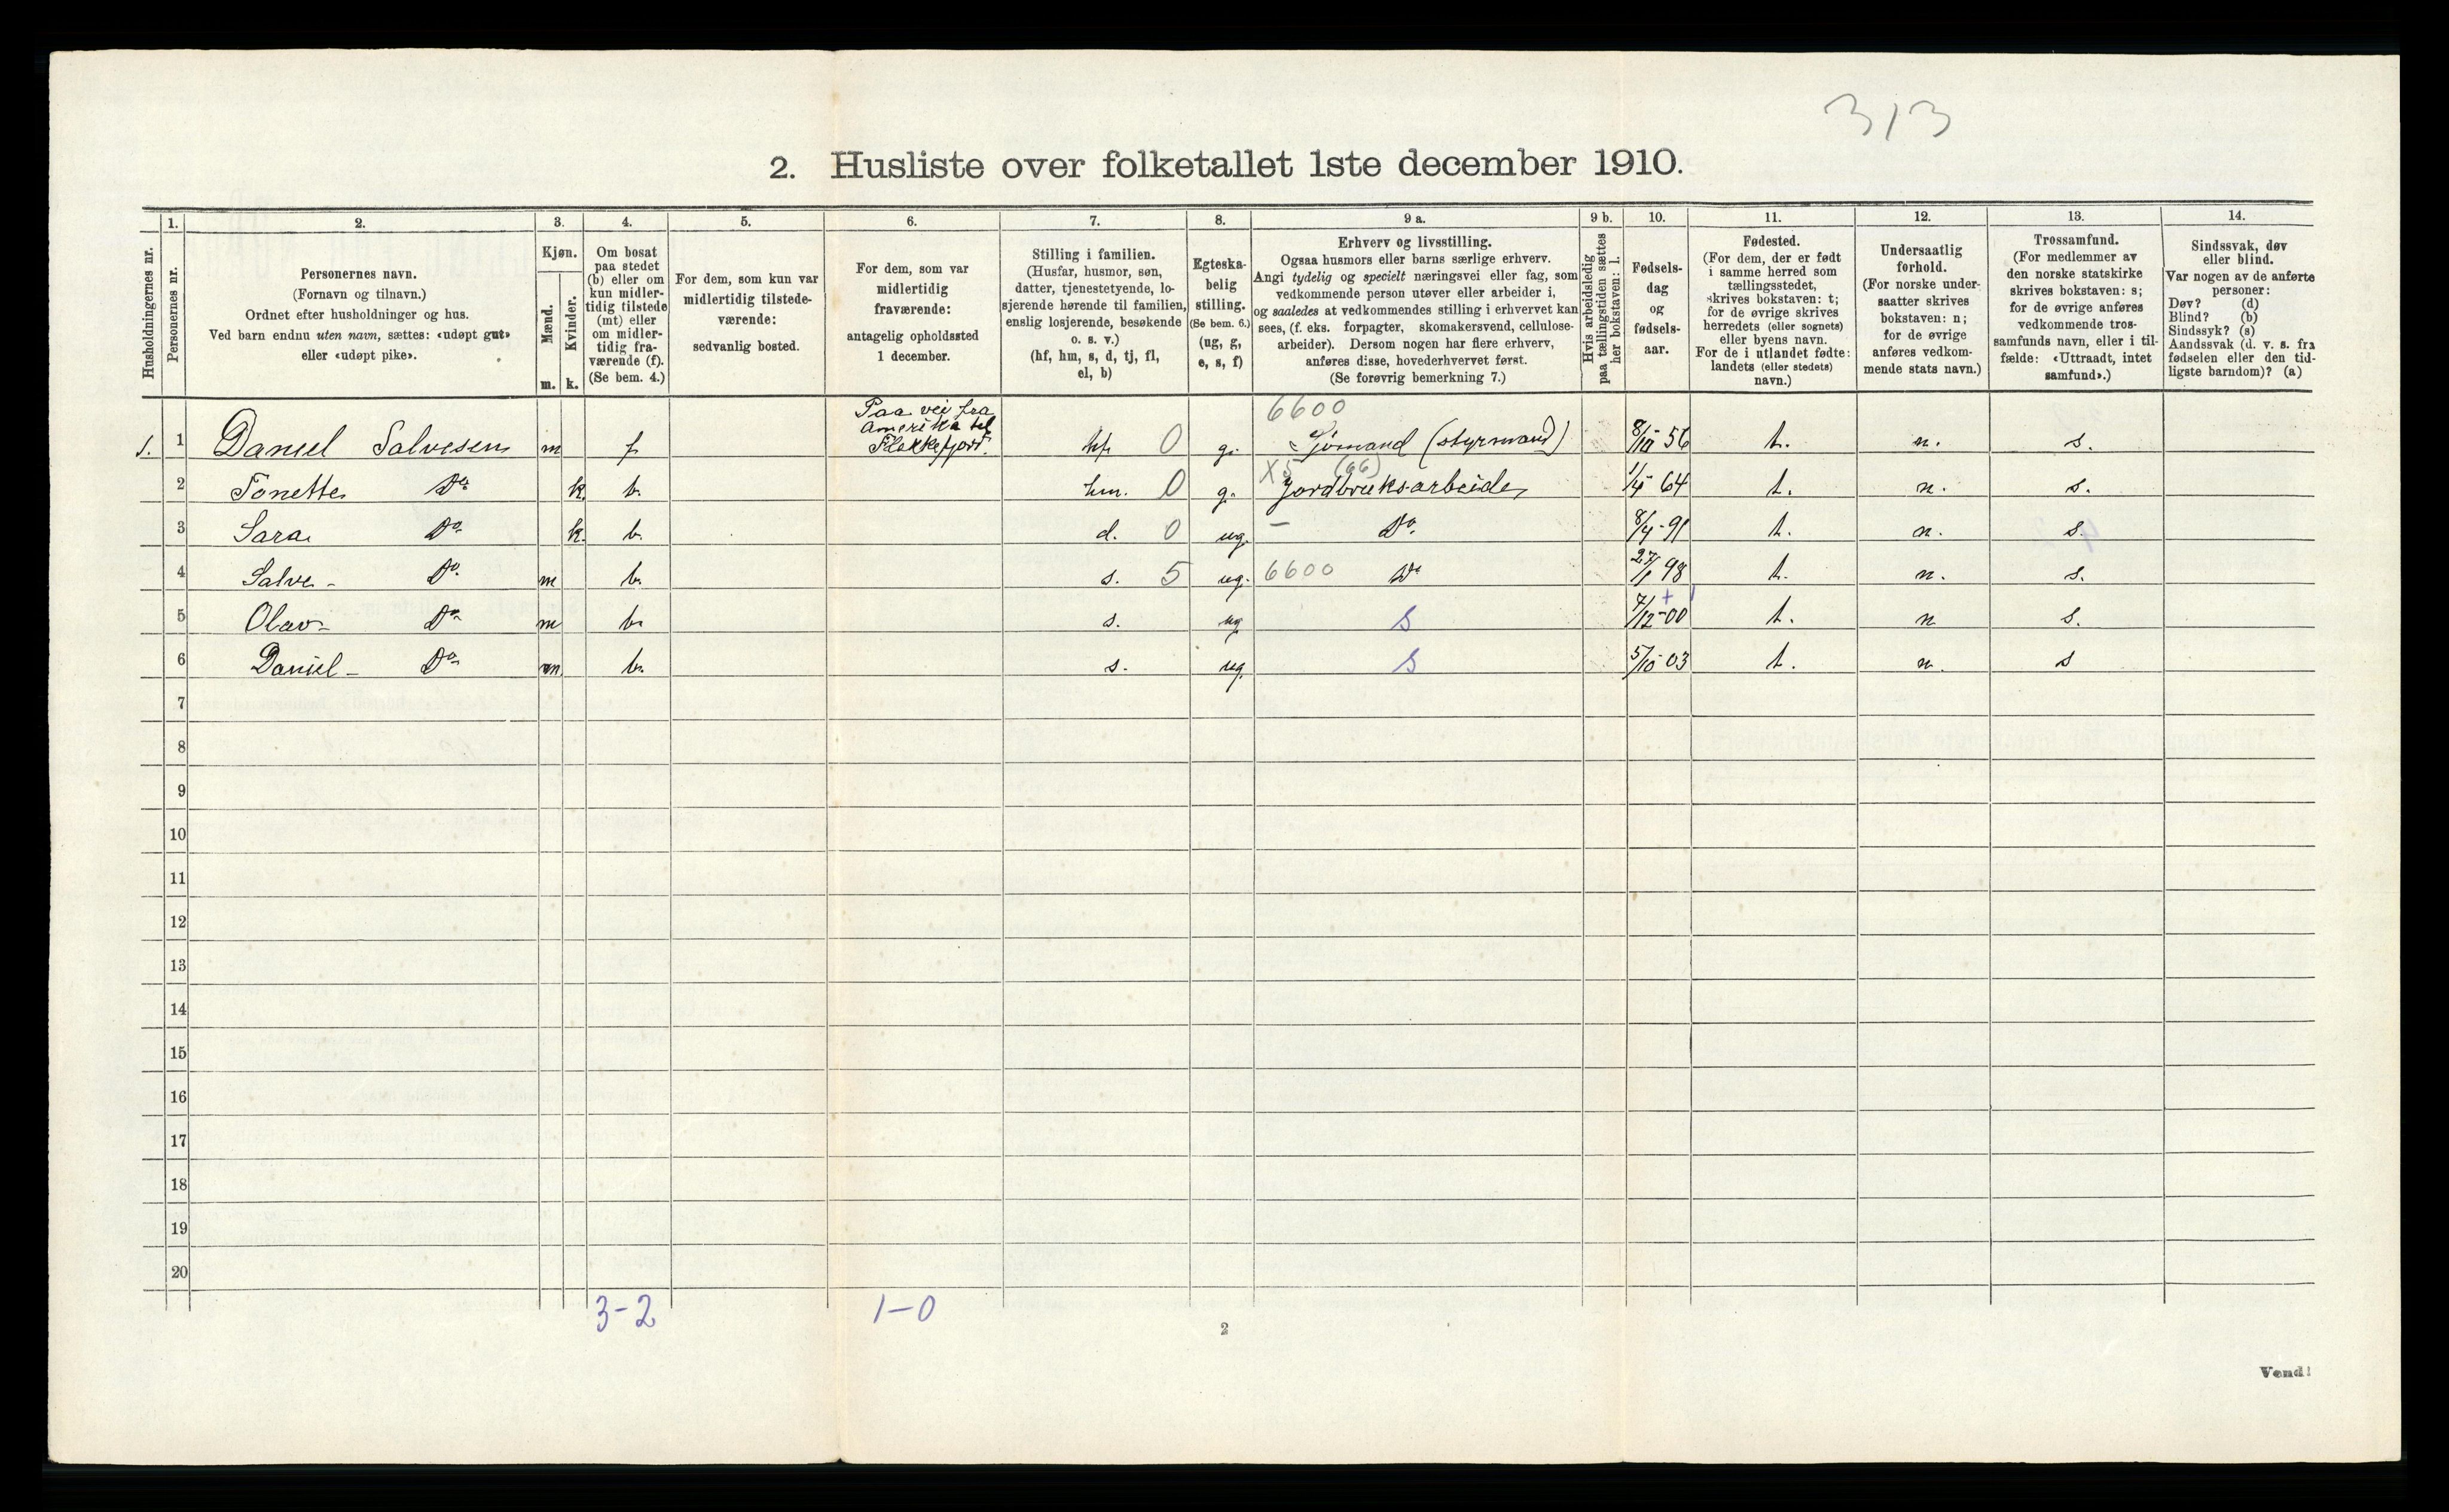 313
2. Husliste over folketallet 1ste december 1910.
Husholdningernes nr.
1.
Personernes nr.
2.
Personernes navn.
(Fornavn og tilnavn.)
Ordnet efter husholdninger og hus.
Ved barn endnu uten navn, sættes: «udøpt gut»
eller «udøpt pike».
3.
Kjøn.
Mænd.
Kvinder.
m. k.
4.
Om bosat
paa stedet
(b) eller om
kun midler-
tidig tilstede
(mt) eller
om midler-
tidig fra-
værende (f).
(Se bem. 4.)
5.
For dem, som kun var
midlertidig tilstede-
værende:
sedvanlig bosted.
6.
For dem, som var
midlertidig
fraværende:
antagelig opholdssted
1 december.
7.
Stilling i familien.
(Husfar, husmor, søn,
datter, tjenestetyende, lo-
sjerende hørende til familien,
enslig losjerende, besøkende
o. s. v.)
(hf, hm, s, d, tj, fl,
el, b)
8.
Egteska-
belig
stilling.
(Se bem. 6.)
(ug, g,
e, s, f)
9 a.
Erhverv og livsstilling.
Ogsaa husmors eller barns særlige erhverv.
Angi tydelig og specielt næringsvei eller fag, som
vedkommende person utøver eller arbeider i,
og saaledes at vedkommendes stilling i erhvervet kan
sees, (f. eks. forpagter, skomakersvend, cellulose-
arbeider). Dersom nogen har flere erhverv,
anføres disse, hovederhvervet først.
(Se forøvrig bemerkning 7.)
9 b.
Hvis arbeidsledig
paa tællingstiden sættes
her bokstaven: l.
10.
Fødsels-
dag
og
fødsels-
aar.
11.
Fødested.
(For dem, der er født
i samme herred som
tællingsstedet,
skrives bokstaven: t;
for de øvrige skrives
herredets (eller sognets)
eller byens navn.
For de i utlandet fødte:
landets (eller stedets)
navn.)
12.
Undersaatlig
forhold.
(For norske under-
saatter skrives
bokstaven: n;
for de øvrige
anføres vedkom-
mende stats navn.)
13.
Trossamfund.
(For medlemmer av
den norske statskirke
skrives bokstaven: s;
for de øvrige anføres
vedkommende tros-
samfunds navn, eller i til-
fælde: «Uttraadt, intet
samfund».)
14.
Sindssvak, døv
eller blind.
Var nogen av de anførte
personer:
Døv? (d)
Blind? (b)
Sindssyk? (s)
Aandssvak (d. v. s. fra
fødselen eller den tid-
ligste barndom)? (a)
Paa vei fra
Amerika til
Flekkefjord.
6600
1. 1 Daniel Salvesen m f hf 0 g. Sjømand (styrmand) 8/10 56 t. n. s.
X5 (66)
2 Tonette Do k. b. hm. 0 g. Jordbruksarbeide 64 t. n. s.
3 Sara Do k. b. d. 0 ug. – Do 91 t. n. s.
4 Salve - Do m b. s. 5 ug. 6600 Do 98 t. n. s.
5 Olav - Do m b. s. ug S 7/12-00 t. n s.
6 Daniel - Do m. b. s. ug. S 5/10 03 t. n. s
7
8
9
10
11
12
13
14
15
16
17
18
19
20
3-2 1-0
2
Vend!